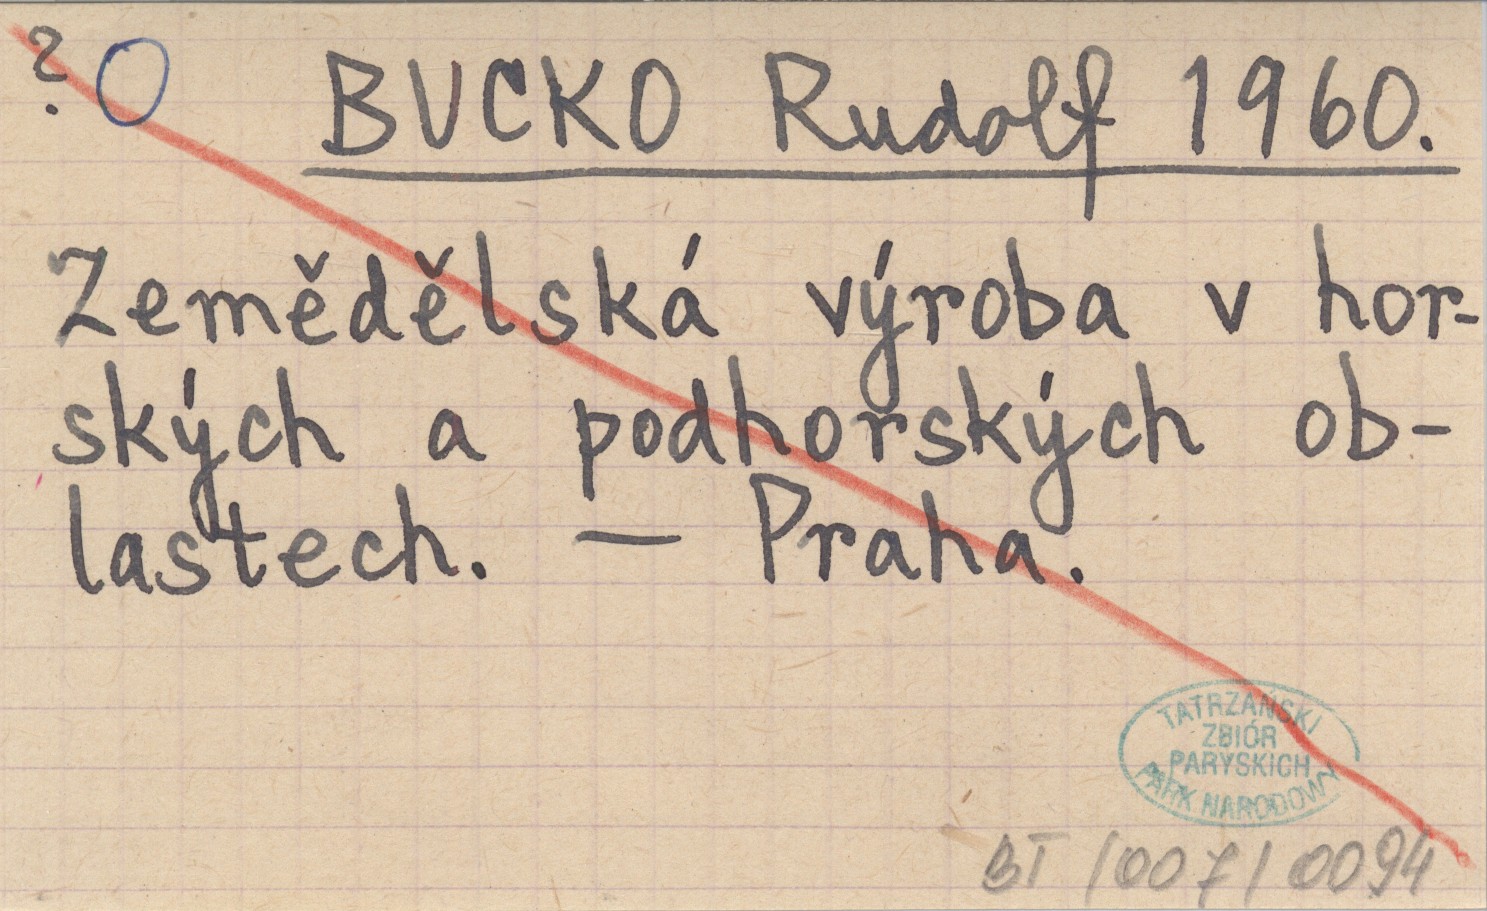 ? O BUCKO Rudolf 1960.
Zemědělská výroba v hor-
ských a podhorských ob-
lastech. — Praha.
TATRZAŃSKI
ZBIÓR
PARYSKICH
PARK NARODOWY
BT/007/0094